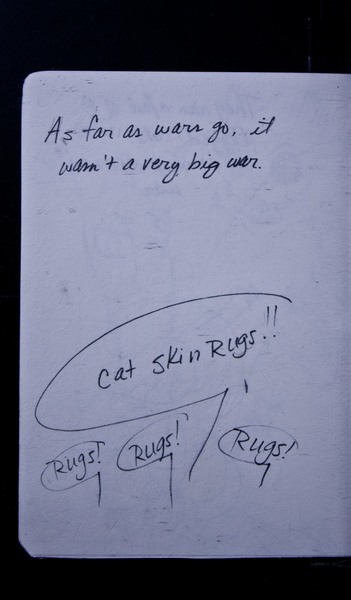 As far as wars go, it
wasn't a very big war.
Cat Skin Rugs!!
Rugs! Rugs! Rugs!